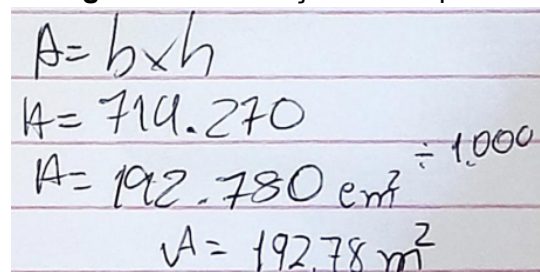 A= b×h
A= 714.270
A= 192.780 cm² ÷ 1.000
A= 192,78 m²